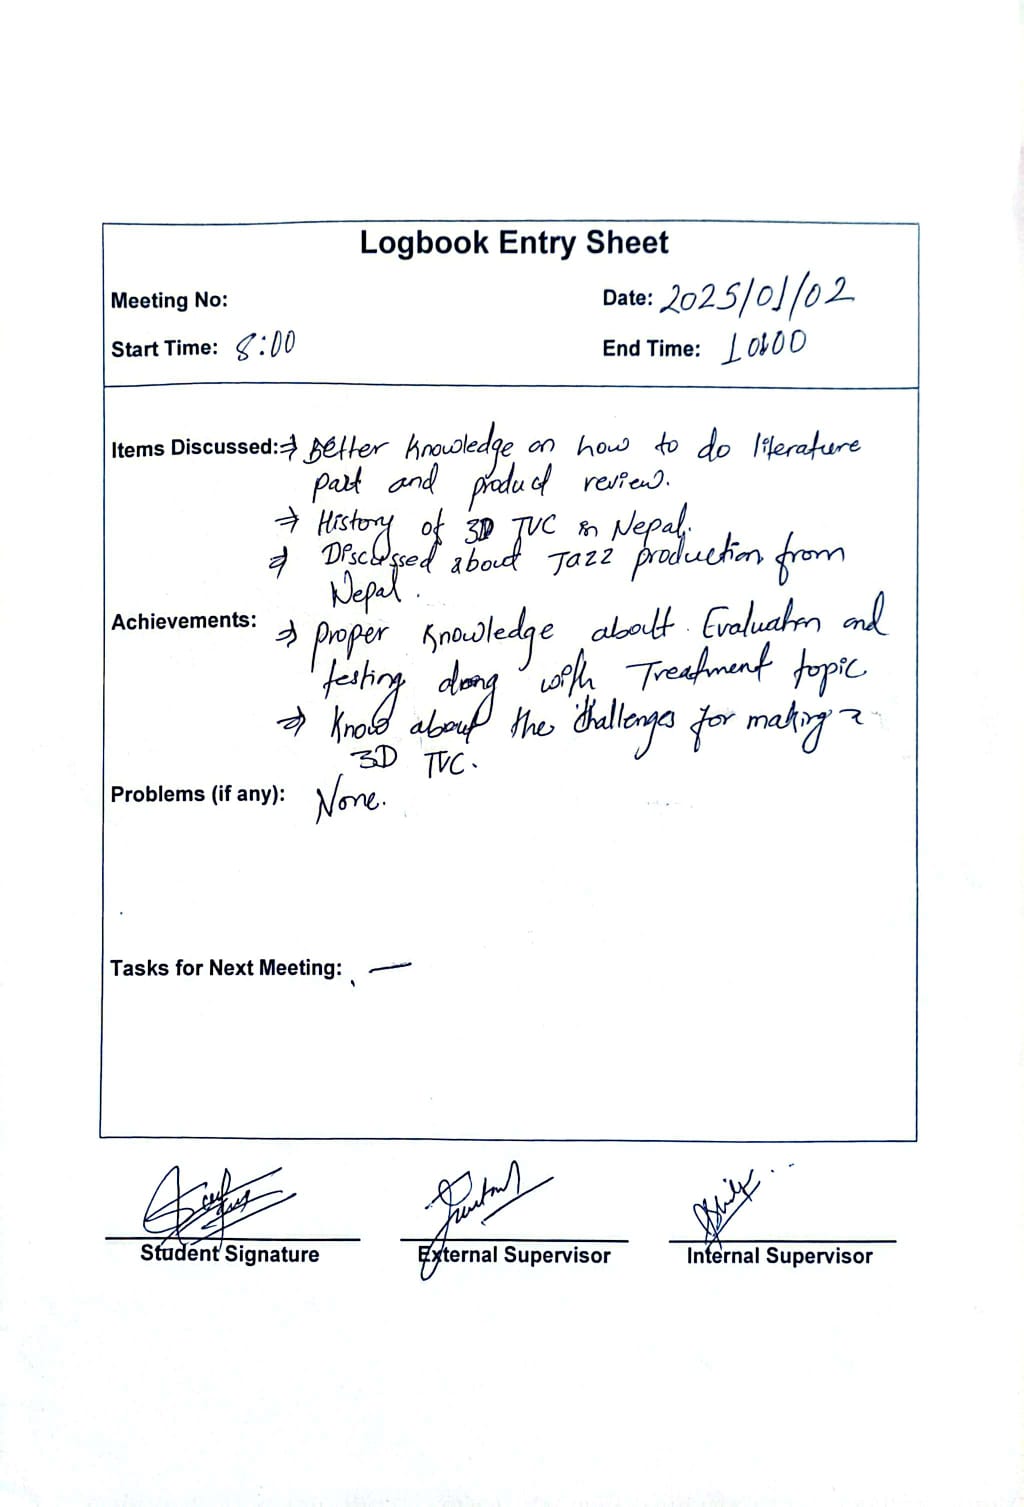 Logbook Entry Sheet
Meeting No:
Date: 2025/01/02
Start Time: 8:00
End Time: 10:00
Items Discussed: ⇒ Better knowledge on how to do literature
part and product review.
⇒ History of 3D TVC in Nepal.
⇒ Discussed about Jazz production from
Nepal.
Achievements: ⇒ Proper knowledge aboutt Evaluation and
testing along with Treatment topic
⇒ Know about the challenges for making a
3D TVC.
Problems (if any): None.
Tasks for Next Meeting: —
Student Signature
External Supervisor
Internal Supervisor